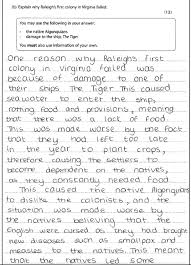 (b) Explain why Raleigh's first colony in Virginia failed.
(12)
You may use the following in your answer:
• the native Algonquians
• damage to the ship, The Tiger
You must also use information of your own.
One reason why Raleigh's first
colony in Virginia failed was
because of damage to one of
their ships The Tiger. This caused
seawater to enter the ship,
rotting food and provisions, meaning
that there was a lack of food.
This was made worse by the fact
that they had left too late
in the year to plant crops,
therefore causing the settlers to
become dependent on the natives,
as they constantly needed food.
This caused the native Algonquians
to dislike the colonists, and the
situation was made worse by
the natives believing that the
English were cursed as they had brought
new diseases such as smallpox and
measles to the natives. This meant
that the natives led some